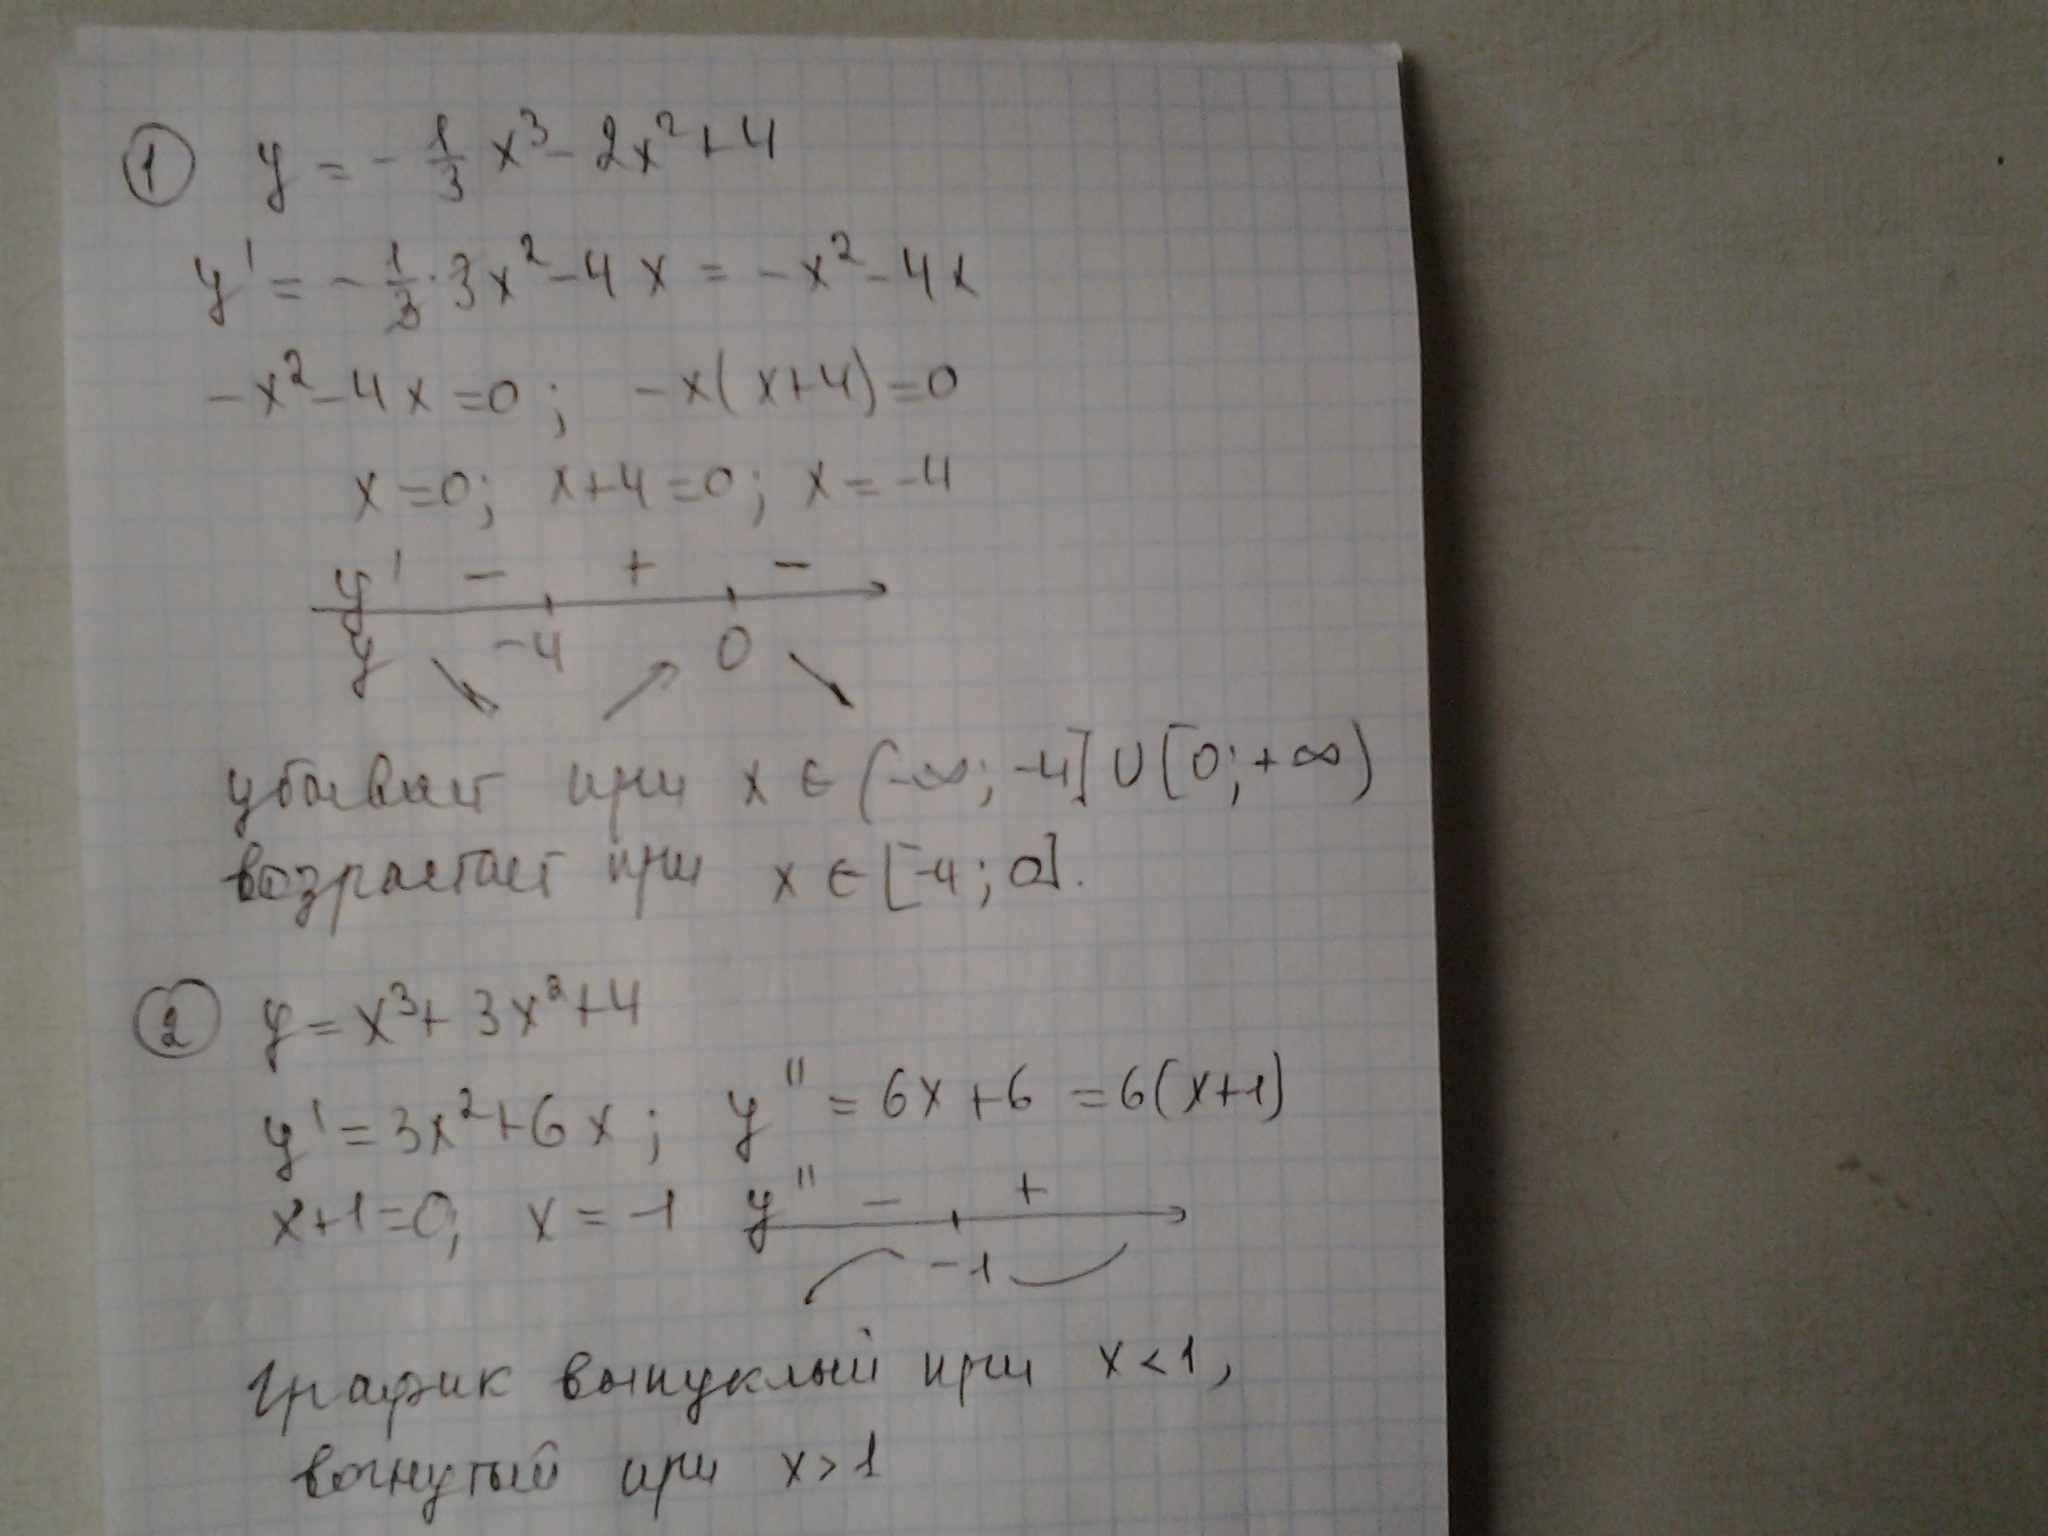 ① y = -1/3 x³ - 2x² + 4
y' = -1/3 · 3x² - 4x = -x² - 4x
-x² - 4x = 0; -x(x+4) = 0
x = 0; x+4 = 0; x = -4
y' - + -
y -4 0
убывает при x ∈ (-∞; -4] ∪ [0; +∞)
возрастает при x ∈ [-4; 0].
② y = x³ + 3x² + 4
y' = 3x² + 6x; y'' = 6x + 6 = 6(x+1)
x+1=0; x = -1 y'' - +
-1
График выпуклый при x < 1,
вогнутый при x > 1